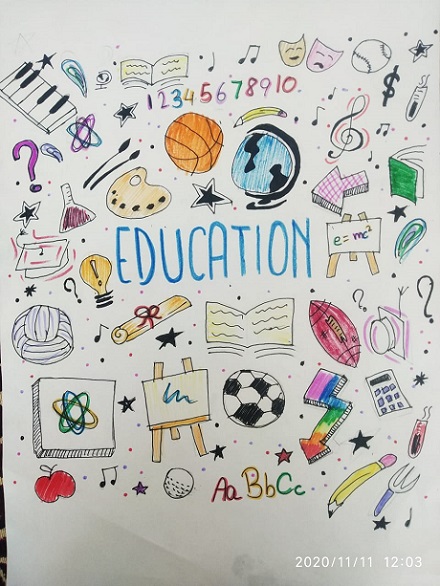 12345678910
$
?
e=mc²
EDUCATION
!
?
?
Aa Bb Cc
2020/11/11 12:03